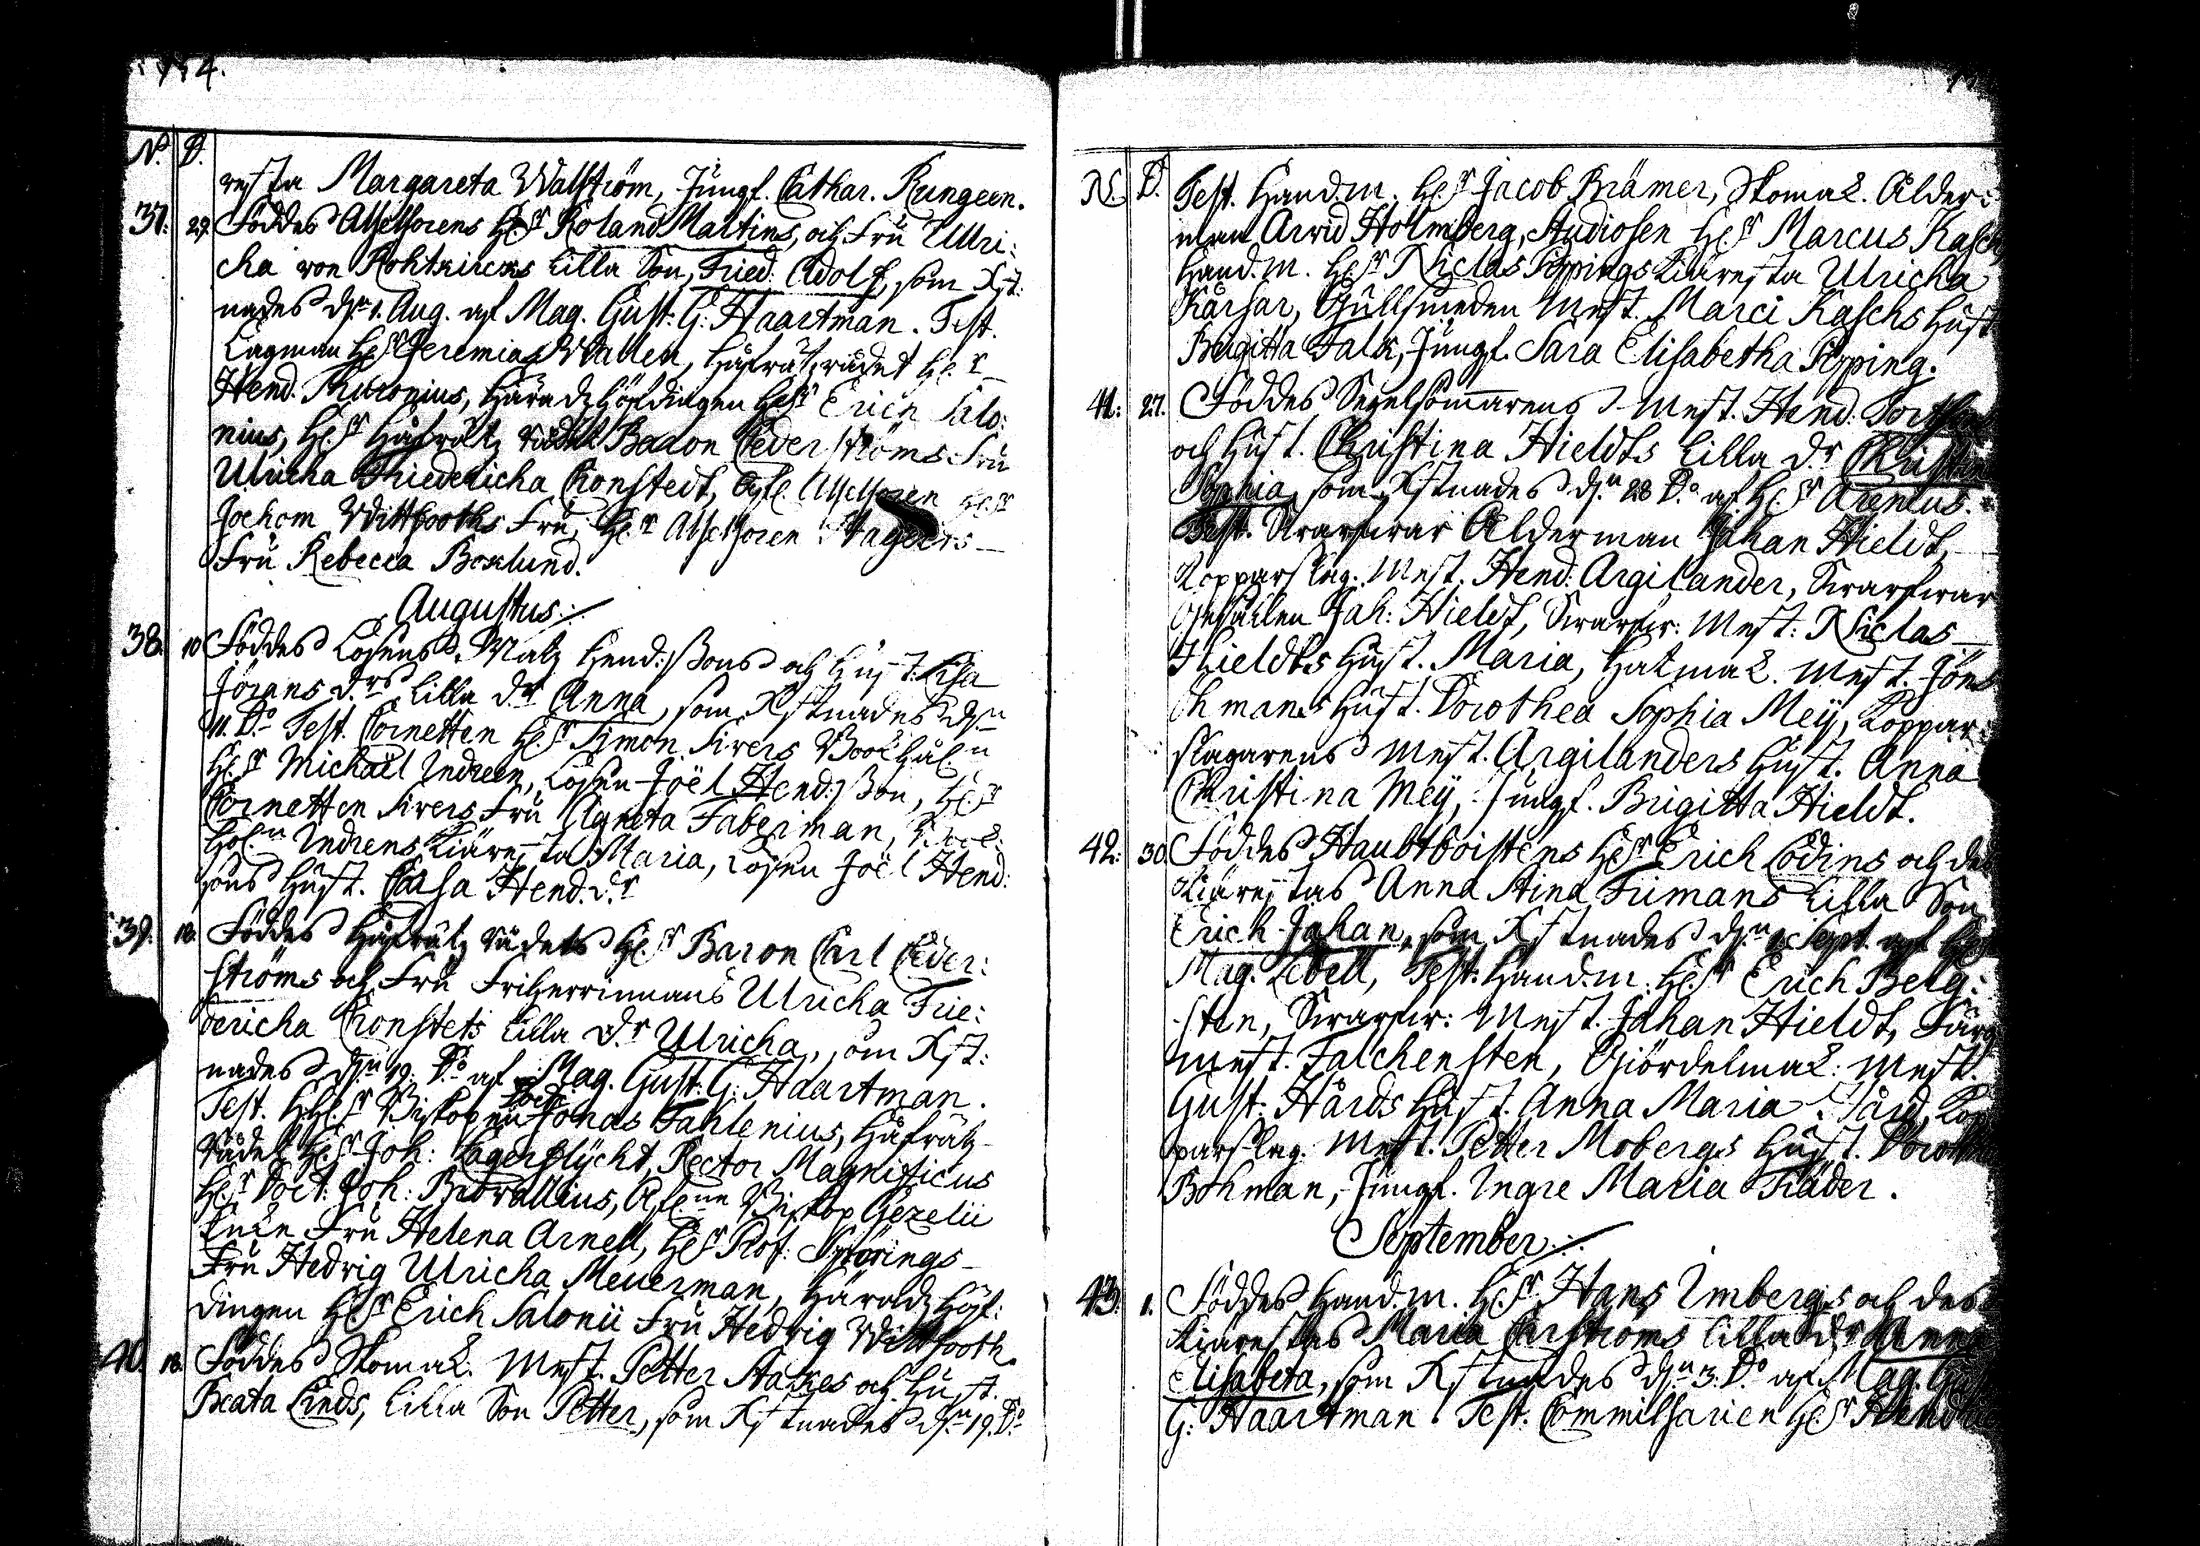 174.
No. D.
resta Margareta Walström, Jungf. Cathar. Rungeen.
37. 29. Föddes Assessorens He:r Roland Maltins, och Fru Ulri:
cha von Rohtkircks lilla Son, Fried. Adolf, som Xst:
nades d:n 1. Aug. af Mag. Gust: G: Haartman. Test.
Lagman He:r Jeremias Wallen, Håfrätzrådet He:r
Hend. Thuronius, Häradzhöfdingen He:r Erich Salo:
nius, He:r Håfrätz Rådet Baron Cederströms Fru
Ulricha Friedericha Cronstedt, Assessoren He:r
Jochom Wittfooths Fru, He:r Assessoren Hagers
Fru Rebecca Boxlund.
Augustus:
38. 10 Föddes Losens Matz Hend:ssons och Hust. Lisa
Jörans d:rs lilla d:r Anna, som Xstnades d:n
11. D:o Test. Cornetten He:r Simon Sivers Bookhål:n
He:r Michaël Indreen, Losen Joël Hend:sson, He:r
Cornetten Sivers Fru Agneta Faberman, Book:
hol:n Indrens Kiäresta Maria, Losen Joël Hend:
sons Hust. Caisa Hend.d:r
39. 18. Föddes Håfrätz Rådets He:r Baron Carl Ceder:
ströms och Fru Friherrinnans Ulricha Frie:
dericha Cronstets lilla d:r Ulricha, som Xst:
nades d:n 19. D:o af Mag. Gust: G: Haartman.
Test. HHe:r Biskopen Doct. Jonas Fahlenius, Håfrätz
Rådet He:r Joh: Lagerflycht, Rector Magnificus
He:r Doct: Joh: Browallius, Biskop Gezelii
Fru Helena Arnell, He:r Prof: Spörings
Fru Hedvig Ulricha Meuerman, Häradz Höf:
dingen He:r Erich Salonii Fru Hedvig Wittfooth.
40. 18. Föddes Skomak. Mest. Petter Stakes och Hust.
Beata Linds, lilla Son Petter, som Xstnades d:n 19. D:o
N. D. Test. Hand.m. He:r Jacob Brämer, Skomak. Ålder:
man Arvid Holmberg, Studiosen He:r Marcus Kasch,
Hand.m. He:r Niclas Pippings Kiäresta Ulricha
Kärsar, Gullsmeden Mest. Marci Kaschs Hust.
Brigitta Falk, Jungf. Sara Elisabetha Pipping.
41. 27. Föddes Segelsömarens Mest. Hend.
och Hust. Christina Hieldts lilla d:r Christina
Sophia, som Xstnades d:n 28 D:o af He:r Arenius.
Test. Swarfwar Ålderman Johan Hieldt,
Kopparslag. Mest. Hend: Argilander, Swarfwar
Gesällen Joh: Hieldt, Swarfw: Mest: Niclas
Hieldts Hust. Maria, Hatmak. Mest. Jöns
Öhmans Hust. Dorothea Sophia Meÿ, Koppar:
slagarens Mest. Argilanders Hust. Anna
Christina Meÿ, Jungf. Brigitta Hieldt.
42. 30. Föddes Haubtboistens He:r Erich Lodins och des
Kiärestas Anna Stina Frimans lilla Son
Erich Johan, som Xstnades d:n Sept. af
Mag. Lebell, Test: Hand.m: He:r Erich Berg:
sten, Swarfw: Mest. Johan Hieldt, Färg
Mest. Falchensten, Giördelmak: Mest.
Gust: Hårds Hust. Anna Maria Hård, Kop
parslag. Mest. Petter Mobergs Hust. Doroth
Bohman, Jungf. Ingre Maria Träder.
September:
43. 1. Föddes Hand.m. He:r Hans Imbergs och des
Kiärestas Maria Carströms lilla d:r Anna
Elisabeta, som Xstnades d:n 3. D:o af Mag. Gust
G: Haartman. Test. Commissarien He:r